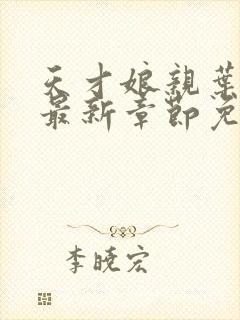 天才娘親葉
最新章節免
李曉宏